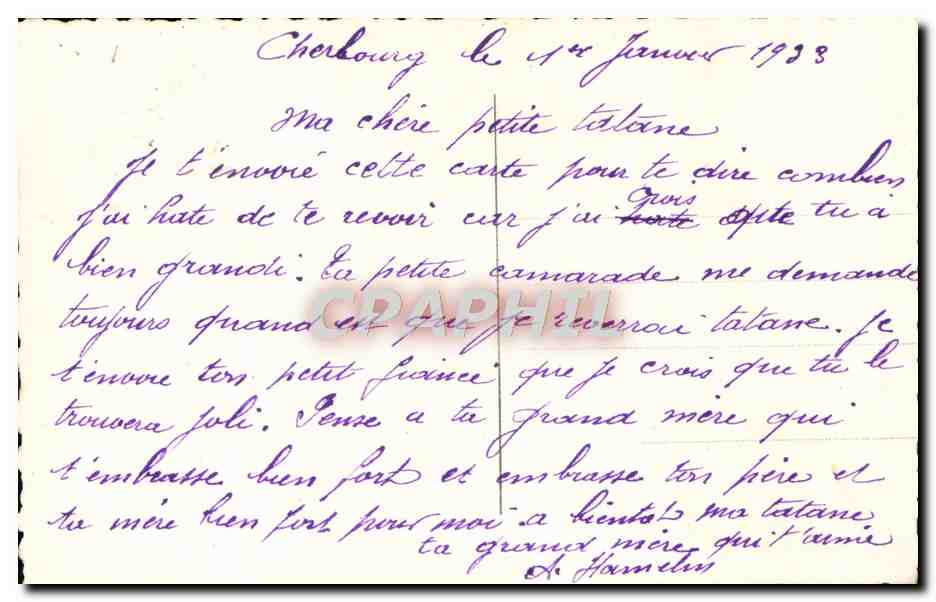 Cherbourg le 1er Janvier 1933
Ma chère petite tatane
Je t'envoie cette carte pour te dire combien
j'ai hate de te revoir car j'ai crois que tu a
bien grandi. Ta petite camarade me demande
toujours quand est que je reverrai tatane. Je
t'envoie ton petit fiancé que je crois que tu le
trouvera joli. Pense a ta grand mère qui
t'embrasse bien fort et embrasse ton père et
ta mère bien fort pour moi a bientot ma tatane
ta grand mère qui t'aime
A. Hamelin
CPAPHIL